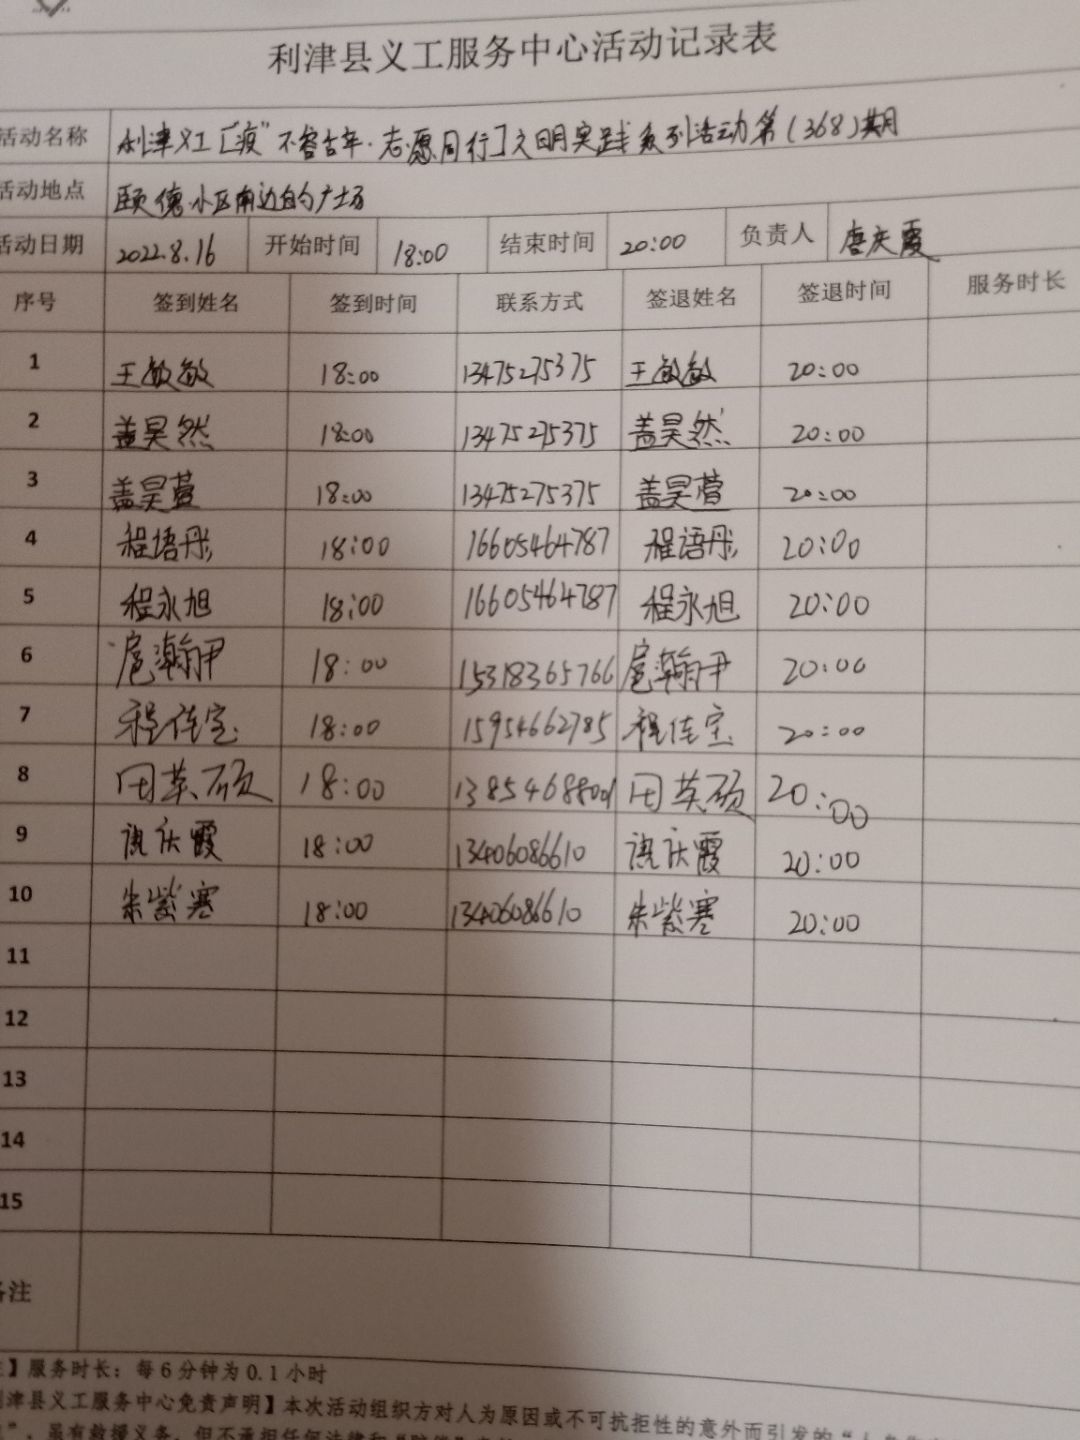 利津县义工服务中心活动记录表
活动名称 利津义工["疫"不容古年·志愿同行]文明实践系列活动第(368)期
活动地点 颐德小区南边的广场
活动日期 2022.8.16 开始时间 18:00 结束时间 20:00 负责人 唐庆霞
序号 签到姓名 签到时间 联系方式 签退姓名 签退时间 服务时长
1 王敏敏 18:00 13475275375 王敏敏 20:00
2 盖昊然 18:00 13475275375 盖昊然 20:00
3 盖昊萱 18:00 13475275375 盖昊萱 20:00
4 程语彤 18:00 16605464787 程语彤 20:00
5 程永旭 18:00 16605464787 程永旭 20:00
6 扈瀚尹 18:00 15318365766 扈瀚尹 20:00
7 程佳宝 18:00 15954662785 程佳宝 20:00
8 田英硕 18:00 13854688001 田英硕 20:00
9 庆霞 18:00 13406086610 庆霞 20:00
10 朱紫寒 18:00 13406086610 朱紫寒 20:00
11
12
13
14
15
备注
】服务时长：每6分钟为0.1小时
津县义工服务中心免责声明】本次活动组织方对人为原因或不可抗拒性的意外而引发的"人身
"，虽有救援义务，但不承担任何法律和